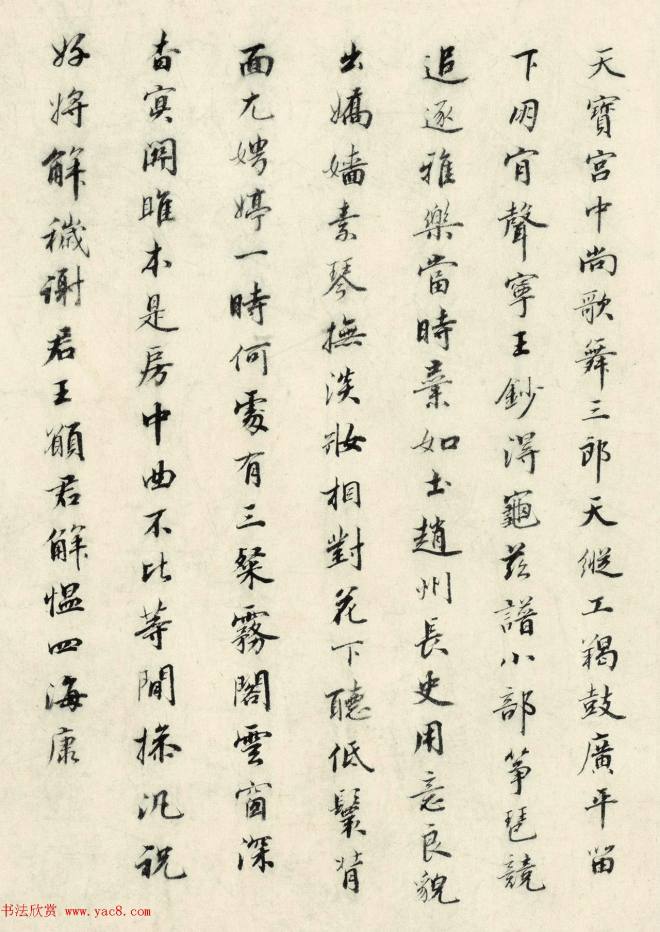 天寶宮中尚歌舞三郎天縱工羯鼓廣平留
下明肯聲寧王鈔得龜茲譜小部箏琶競
追逐雅樂當時棄如土趙州長史用意良貌
出嬌嬙素琴撫淡妝相對花下聽低鬟背
面尤娉婷一時何處有三粲霧閣雲窗深
杳冥關雎本是房中曲不比等閒操汎祝
好將解穢謝君王願君解愠四海康
书法欣赏 www.yac8.com